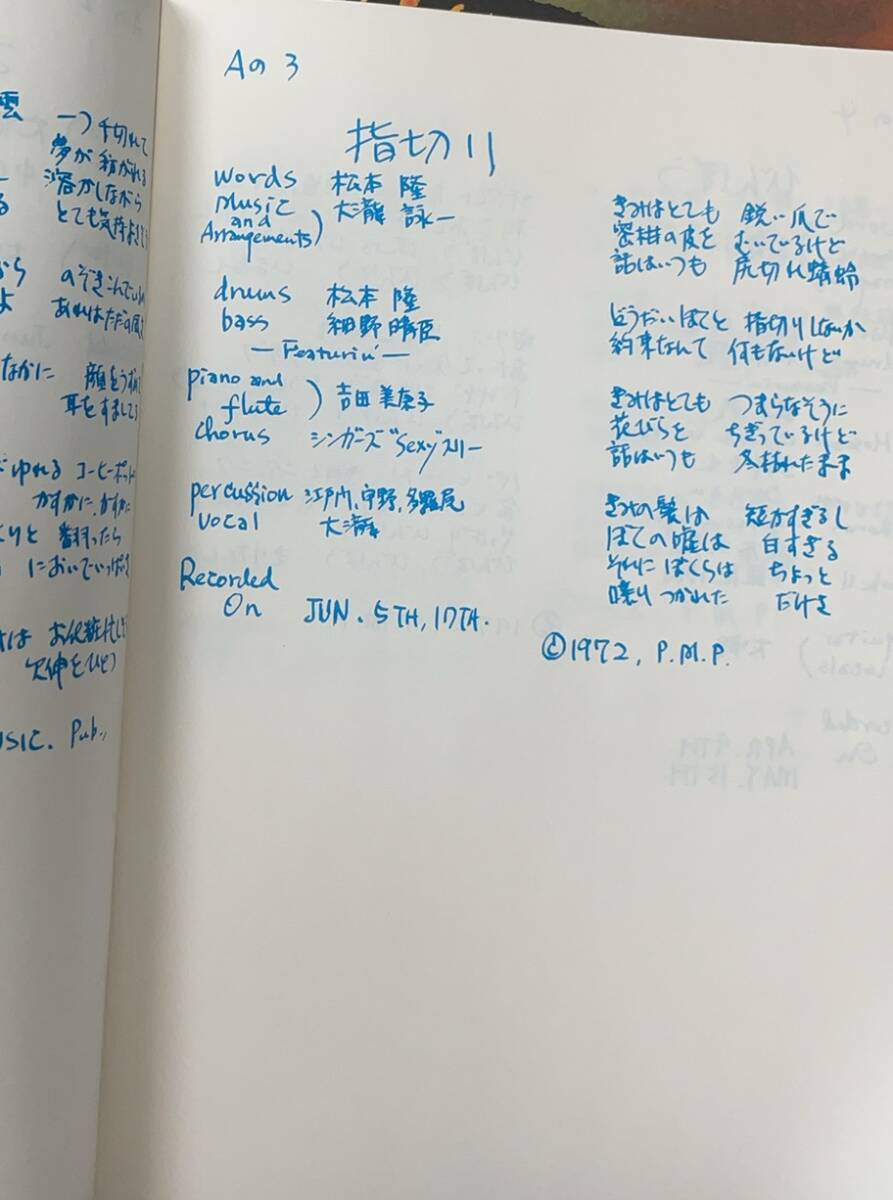 雲 一つ千切れて
夢が紡がれる
溶かしながら
とても気持よさそう
のぞきこんでいる
よ あれはただの風
なかに 顔をうずめ
耳をすまして
ゆれる コーヒーポット
かすかに、かすかに
と 翻ったら
においでいっぱい
は お化粧
欠伸をひとつ
USIC. Pub.,
Aの3
指切り
words 松本 隆
Music and Arrangements) 大瀧 詠一
drums 松本 隆
bass 細野晴臣
— Featurin' —
piano and flute ) 吉田美奈子
chorus シンガーズ"Sexy"スリー
percussion 江戸門、宇野、多羅尾
vocal 大瀧
Recorded
On JUN. 5TH, 17TH.
きみはとても 鋭い爪で
蜜柑の皮を むいているけど
話はいつも 尻切れ蜻蛉
どうだいぼくと 指切りしないか
約束なんて 何もないけど
きみはとても つまらなそうに
花びらを ちぎっているけど
話はいつも 冬枯れたまま
きみの髪は 短かすぎるし
ぼくの嘘は 白すぎる
それにぼくらは ちょっと
喋りつかれた だけさ
©1972, P.M.P.